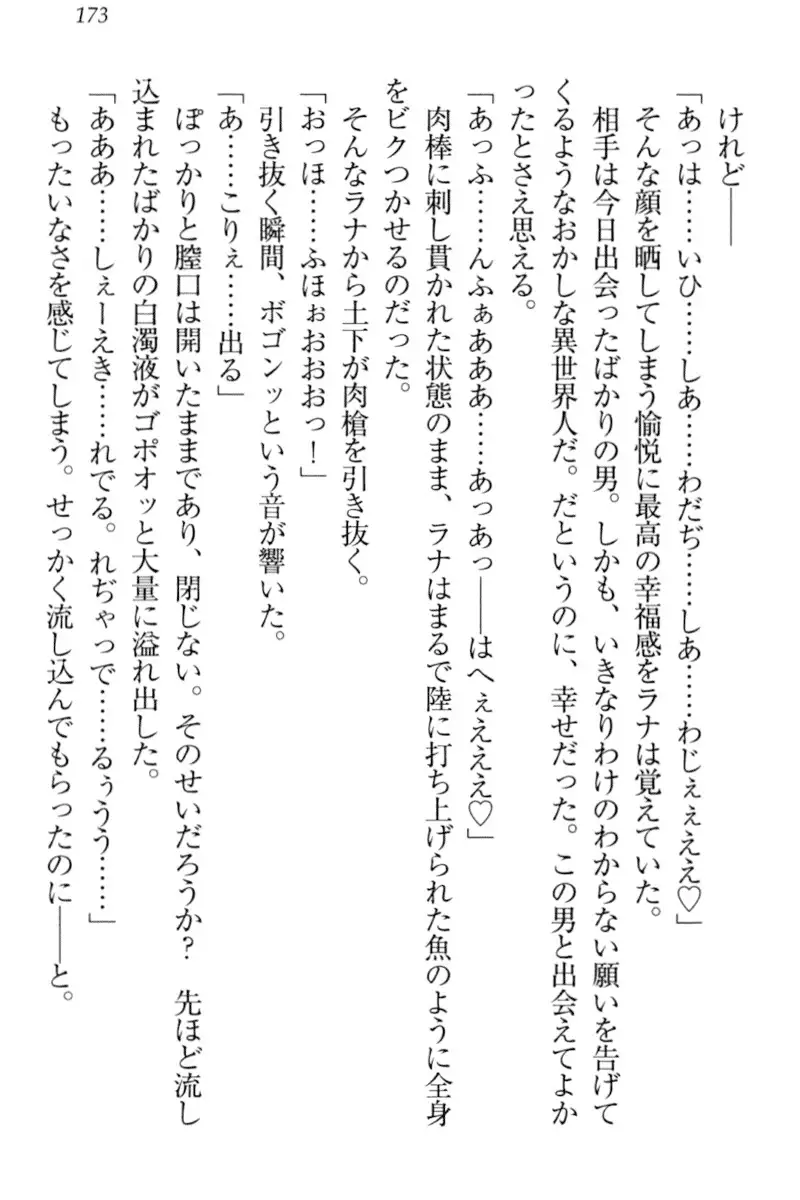 173
けれど――
「あっは……いひ……しあ……わだぢ……しあ……わじぇぇええ♡」
そんな顔を晒してしまう愉悦に最高の幸福感をラナは覚えていた。
相手は今日出会ったばかりの男。しかも、いきなりわけのわからない願いを告げて
くるようなおかしな異世界人だ。だというのに、幸せだった。この男と出会えてよか
ったとさえ思える。
「あっふ……んふぁあああ……あっあっ――はへぇえええ♡」
肉棒に刺し貫かれた状態のまま、ラナはまるで陸に打ち上げられた魚のように全身
をビクつかせるのだった。
そんなラナから土下が肉槍を引き抜く。
「おっほ……ふほぉおおおっ！」
引き抜く瞬間、ボゴンッという音が響いた。
「あ……こりぇ……出る」
ぽっかりと膣口は開いたままであり、閉じない。そのせいだろうか？　先ほど流し
込まれたばかりの白濁液がゴポオッと大量に溢れ出した。
「あああ……しぇーえき……れでる。れぢゃっで……るぅうう……」
もったいなさを感じてしまう。せっかく流し込んでもらったのに――と。